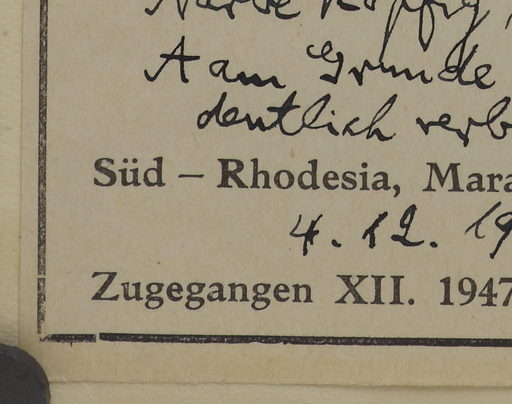 Narbe köpfig
A am Grunde
deutlich verb
Süd – Rhodesia, Mara
4. 12. 19
Zugegangen XII. 1947